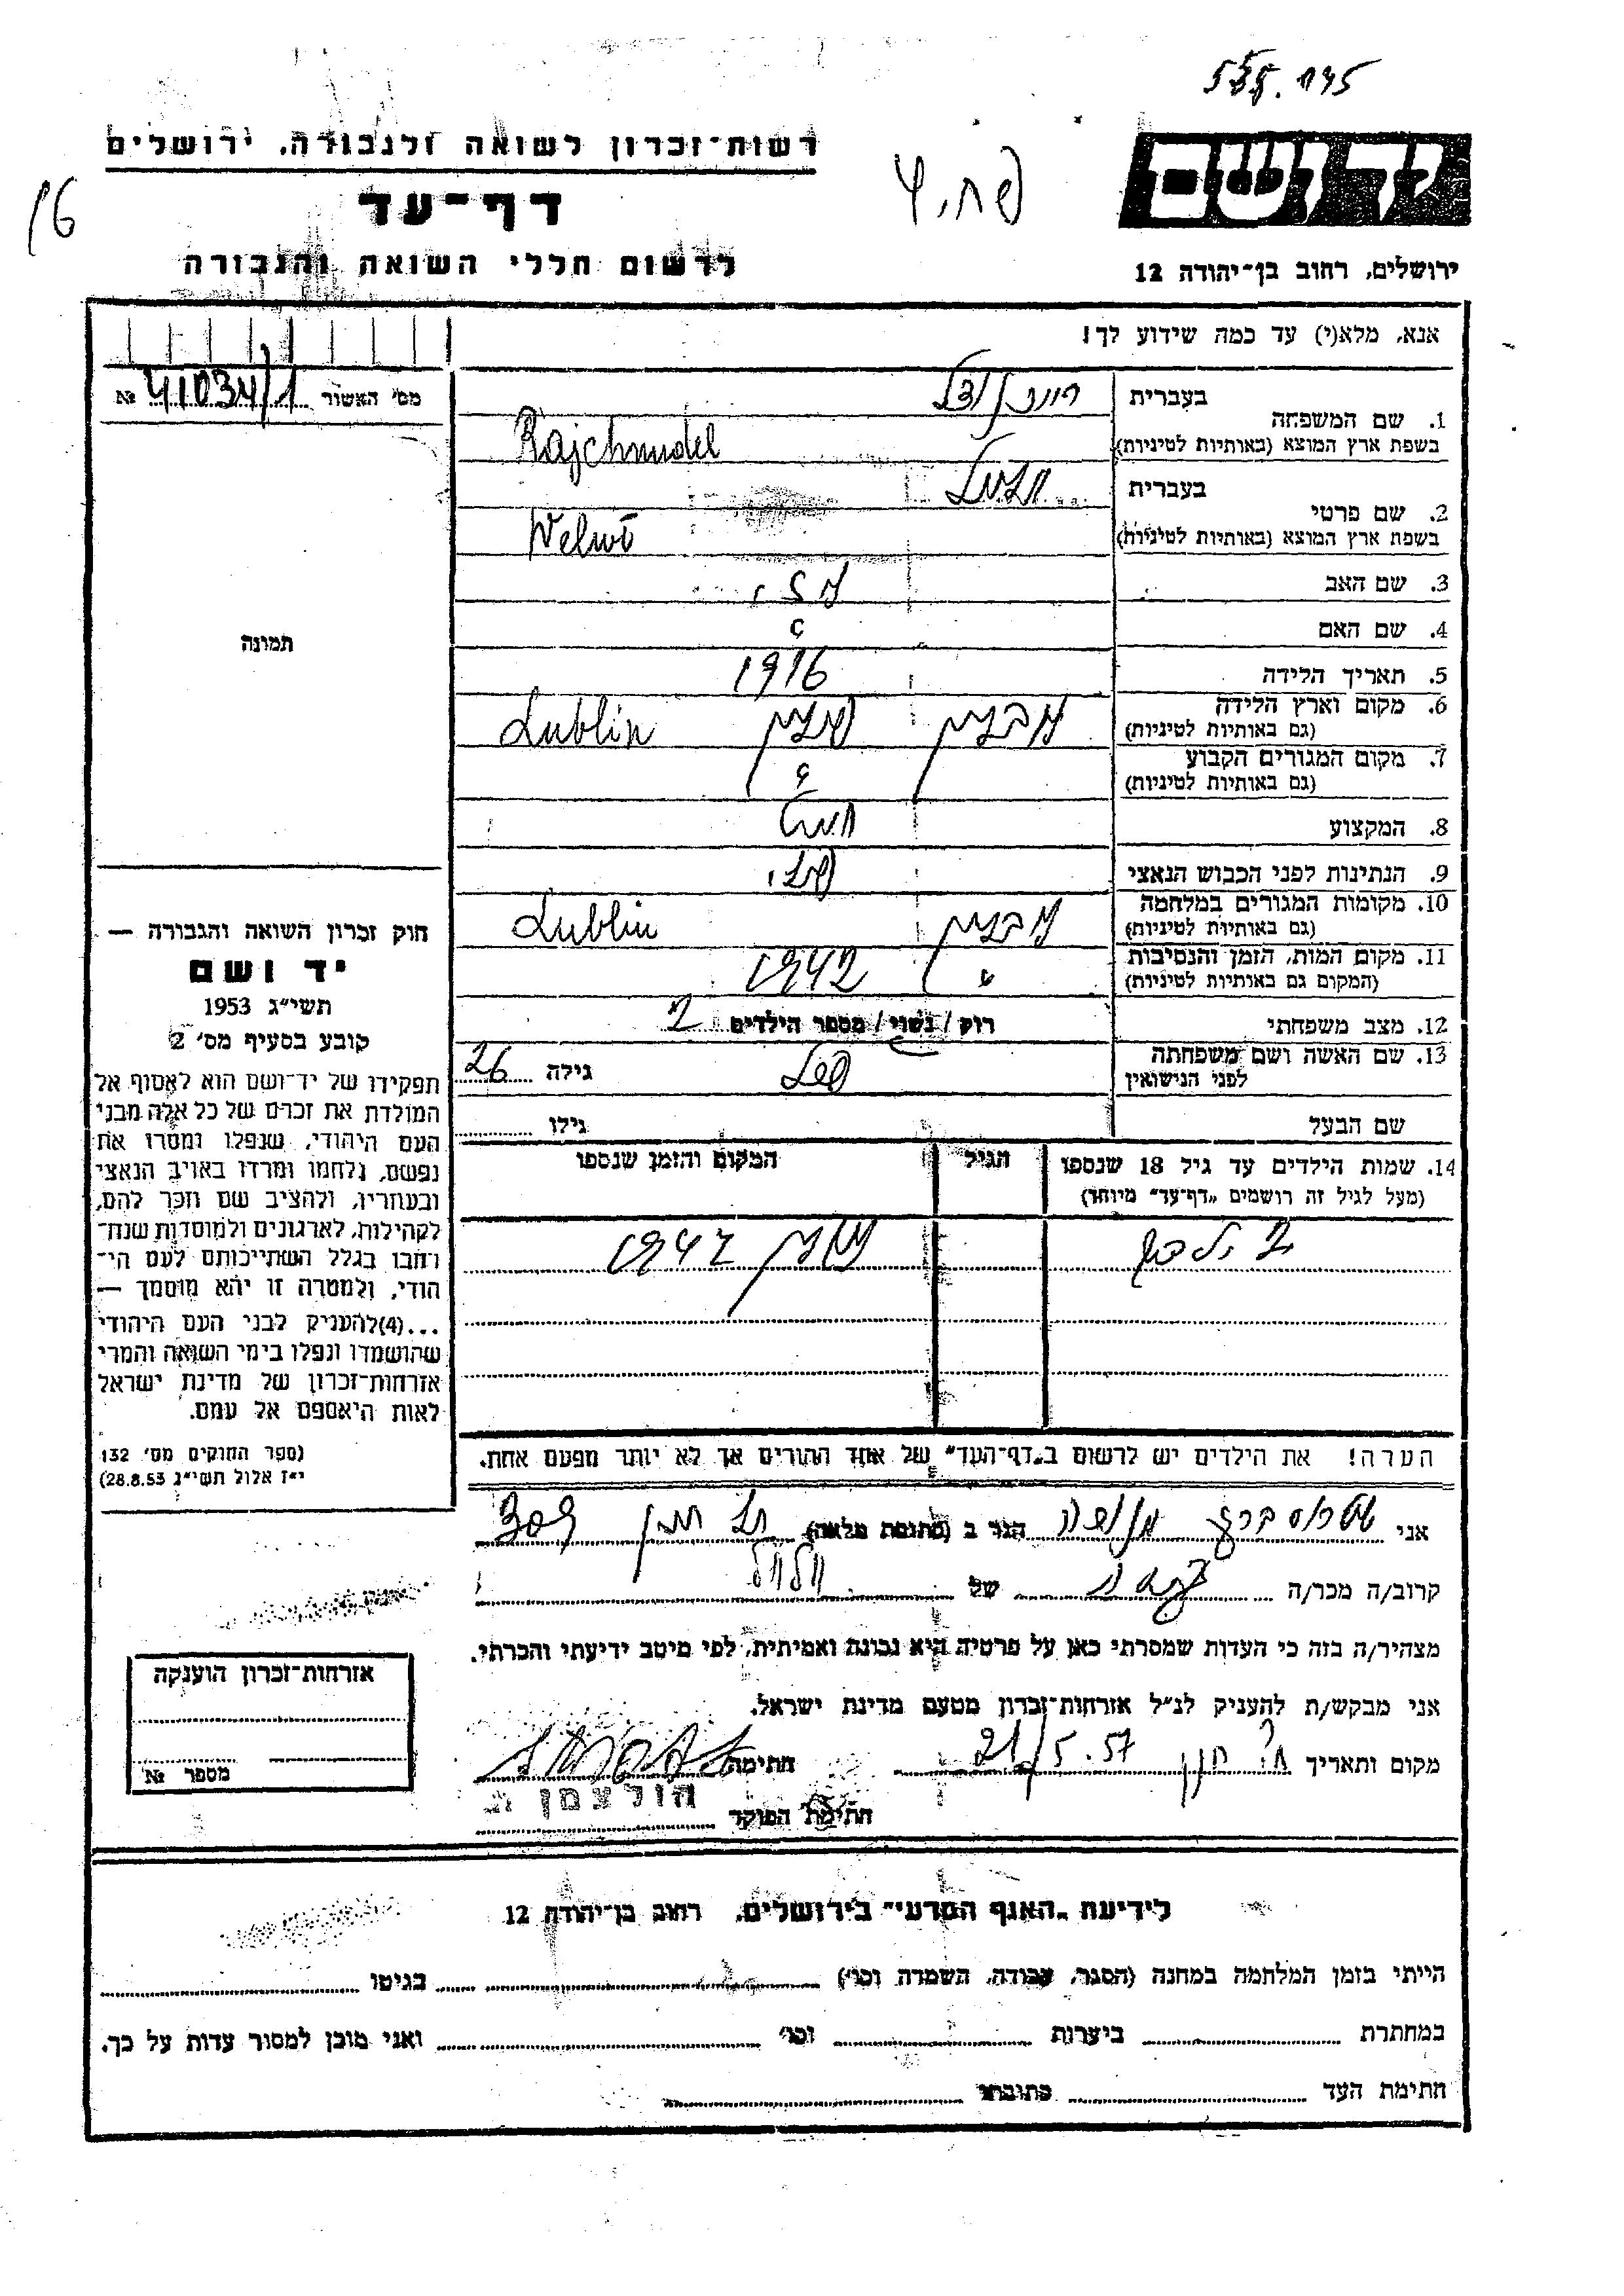 רשות־זכרון לשואה ולגבורה, ירושלים
דף־עד
לרשום חללי השואה והגבורה
16
יד ושם
ירושלים, רחוב בן־יהודה 12
אנא, מלא(י) עד כמה שידוע לך!
מס׳ האשור 41034/1 №
1. שם המשפחה
בעברית
בשפת ארץ המוצא (באותיות לטיניות) Rajchnudel
2. שם פרטי
בעברית
בשפת ארץ המוצא (באותיות לטיניות)
3. שם האב
4. שם האם ?
5. תאריך הלידה 1916
6. מקום וארץ הלידה
(גם באותיות לטיניות) לובלין פולין Lublin
7. מקום המגורים הקבוע
(גם באותיות לטיניות) ?
8. המקצוע
9. הנתינות לפני הכבוש הנאצי פולני
10. מקומות המגורים במלחמה
(גם באותיות לטיניות) לובלין Lublin
11. מקום המות, הזמן והנסיבות
(המקום גם באותיות לטיניות) 1942
12. מצב משפחתי רוק / נשוי / מספר הילדים 2
13. שם האשה ושם משפחתה
לפני הנישואין גילה 26
שם הבעל גילו
14. שמות הילדים עד גיל 18 שנספו
(מעל לגיל זה רושמים „דף־עד״ מיוחד)
הגיל
המקום והזמן שנספו
2 ילדים 1942
הערה! את הילדים יש לרשום ב„דף־העד״ של אחד ההורים אך לא יותר מפעם אחת.
תמונה
חוק זכרון השואה והגבורה —
יד ושם
תשי״ג 1953
קובע בסעיף מס׳ 2
תפקידו של יד־ושם הוא לאסוף אל
המולדת את זכרם של כל אלה מבני
העם היהודי, שנפלו ומסרו את
נפשם, נלחמו ומרדו באויב הנאצי
ובעוזריו, ולהציב שם וזכר להם,
לקהילות, לארגונים ולמוסדות שנח־
רבו בגלל השתייכותם לעם הי־
הודי, ולמטרה זו יהא מוסמך —
...(4)להעניק לבני העם היהודי
שהושמדו ונפלו בימי השואה והמרי
אזרחות־זכרון של מדינת ישראל
לאות היאספם אל עמם.
(ספר החוקים מס׳ 132
י״ז אלול תשי״ג 28.8.53)
אני שטראסברג מנשה הגר ב (כתובת מלאה) תל חנן
קרוב/ה מכר/ה של
מצהיר/ה בזה כי העדות שמסרתי כאן על פרטיה היא נכונה ואמיתית, לפי מיטב ידיעתי והכרתי.
אני מבקש/ת להעניק לנ״ל אזרחות־זכרון מטעם מדינת ישראל.
מקום ותאריך תל חנן 21/5.57 חתימה
הולצמן
חתימת הפוקד
אזרחות־זכרון הוענקה
מספר №
לידיעת „האגף המדעי״ בירושלים, רחוב בן־יהודה 12
הייתי בזמן המלחמה במחנה (הסגר, עבודה, השמדה וכו׳) בגיטו
במחתרת ביערות וכו׳ ואני מוכן למסור עדות על כך.
חתימת העד כתובתו